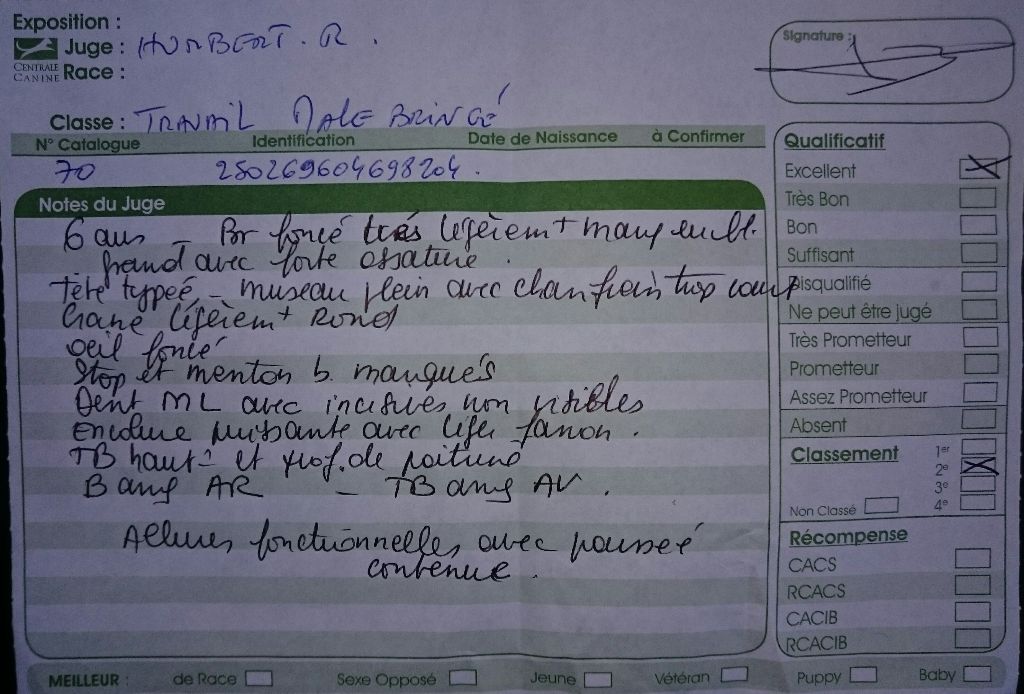 Exposition :
Juge : HUMBERT. R.
CENTRALE CANINE
Race :
Signature :
Classe : TRAVAIL MALE BRINGÉ
N° Catalogue Identification Date de Naissance à Confirmer
70 250269604698204.
Notes du Juge
6 ans - Br foncé très légèremt marq en bl.
grand avec forte ossature.
Tête typeé - museau plein avec chanfrein trop court
Crane légèremt Rond
oeil foncé
Stop et menton b. marqués
Dent ML avec incisives non visibles
Encolure puissante avec léger fanon.
TB haut- et prof. de poitrine
B ang AR - TB ang AV.
Allures fonctionnelles avec pousseé
contenue.
Qualificatif
Excellent
Très Bon
Bon
Suffisant
Disqualifié
Ne peut être jugé
Très Prometteur
Prometteur
Assez Prometteur
Absent
Classement 1er
2e
3e
Non Classé 4e
Récompense
CACS
RCACS
CACIB
RCACIB
MEILLEUR : de Race Sexe Opposé Jeune Vétéran Puppy Baby